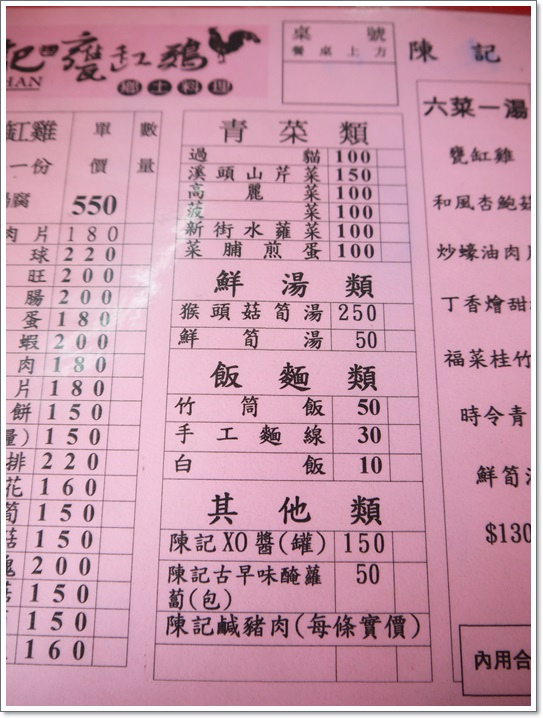 記甕缸鷄
HAN
鄉土料理
桌號
餐桌上方
陳記
缸雞 單價 數量
一份
腐 550
肉片 180
球 220
旺 200
腸 200
蛋 180
蝦 200
肉 180
片 180
餅 150
量) 150
排 220
花 160
筍 150
菇 150
200
150
150
160
青菜類
過貓 100
溪頭山芹菜 150
高麗菜 100
菠菜 100
新街水蕹菜 100
菜脯煎蛋 100
鮮湯類
猴頭菇筍湯 250
鮮筍湯 50
飯麵類
竹筒飯 50
手工麵線 30
白飯 10
其他類
陳記XO醬(罐) 150
陳記古早味醃蘿蔔(包) 50
陳記鹹豬肉(每條實價)
六菜一湯
甕缸雞
和風杏鮑菇
炒蠔油肉片
丁香燴甜
福菜桂竹
時令青
鮮筍湯
$130
內用合